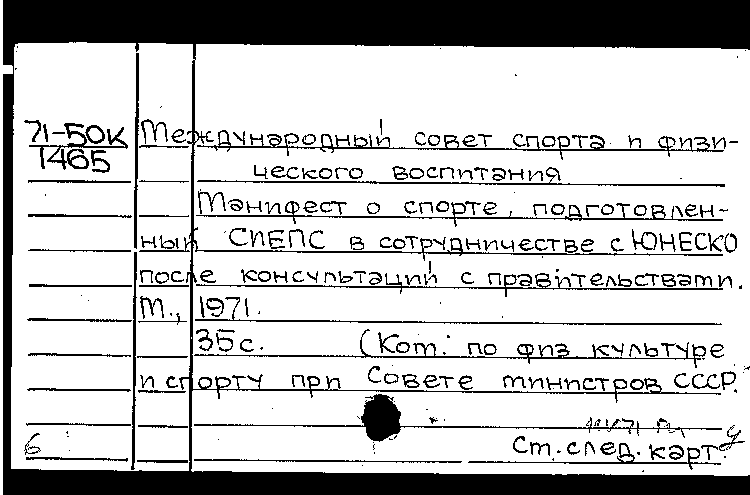 71-50к Международный совет спорта и физи-
1465 ческого воспитания
Манифест о спорте, подготовлен-
ный СИЕПС в сотрудничестве с ЮНЕСКО
после консультаций с правительствами.
М., 1971.
35 с. (Ком. по физ. культуре
и спорту при Совете министров СССР.
6 См. след. карт.